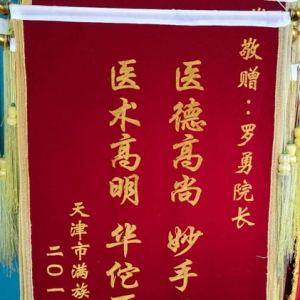 敬赠：罗勇院长
医德高尚 妙手
医术高明 华佗
天津市满族
二〇一